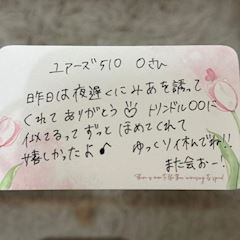 ユアーズ510 〇さん
昨日は夜遅くにみあを誘って
くれてありがとう トリンドル〇〇に
似てるってずっとほめてくれて
嬉しかったよ♪ ゆっくり休んでね!!
また会おー!